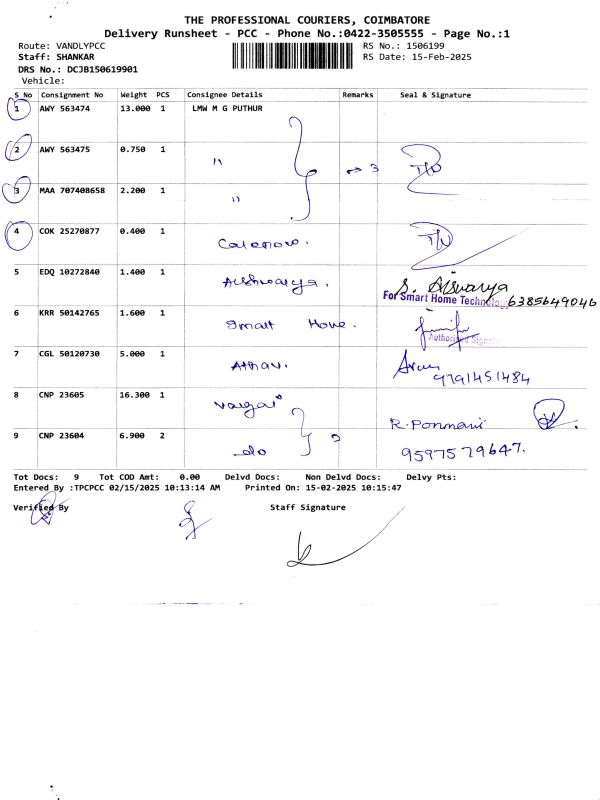 THE PROFESSIONAL COURIERS, COIMBATORE
Delivery Runsheet - PCC - Phone No.:0422-3505555 - Page No.:1
Route: VANDLYPCC
RS No.: 1506199
Staff: SHANKAR
RS Date: 15-Feb-2025
DRS No.: DCJB150619901
Vehicle:
S No Consignment No Weight PCS Consignee Details Remarks Seal & Signature
1 AWY 563474 13.000 1 LMW M G PUTHUR
2 AWY 563475 0.750 1 "
3 MAA 707408658 2.200 1 "
3
4 COK 25270877 0.400 1
5 EDQ 10272840 1.400 1 Aishwarya.
S. Aiswarya
For Smart Home Technology 6385649046
6 KRR 50142765 1.600 1 Smart Home.
Authorised Signatory
7 CGL 50120730 5.000 1
9791451484
8 CNP 23605 16.300 1 Vaigai
R. Ponmani
9 CNP 23604 6.900 2 do
9597579647.
Tot Docs: 9 Tot COD Amt: 0.00 Delvd Docs: Non Delvd Docs: Delvy Pts:
Entered By :TPCPCC 02/15/2025 10:13:14 AM Printed On: 15-02-2025 10:15:47
Verified By Staff Signature